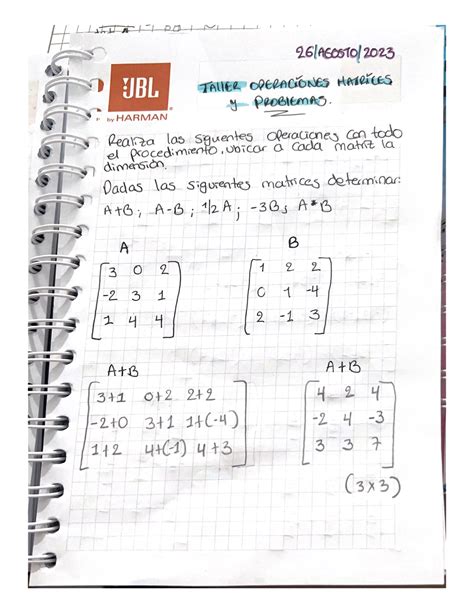 26/AGOSTO/2023
JBL
by HARMAN
TALLER OPERACIONES MATRICES
y PROBLEMAS.
Realiza las siguientes operaciones con todo
el procedimiento, ubicar a cada matriz la
dimensión.
Dadas las siguientes matrices determinar:
A+B; A-B; 1/2 A; -3B; A*B
A B
3 0 2 1 2 2
-2 3 1 0 1 -4
1 4 4 2 -1 3
A+B A+B
3+1 0+2 2+2 4 2 4
-2+0 3+1 1+(-4) -2 4 -3
1+2 4+(-1) 4+3 3 3 7
(3x3)